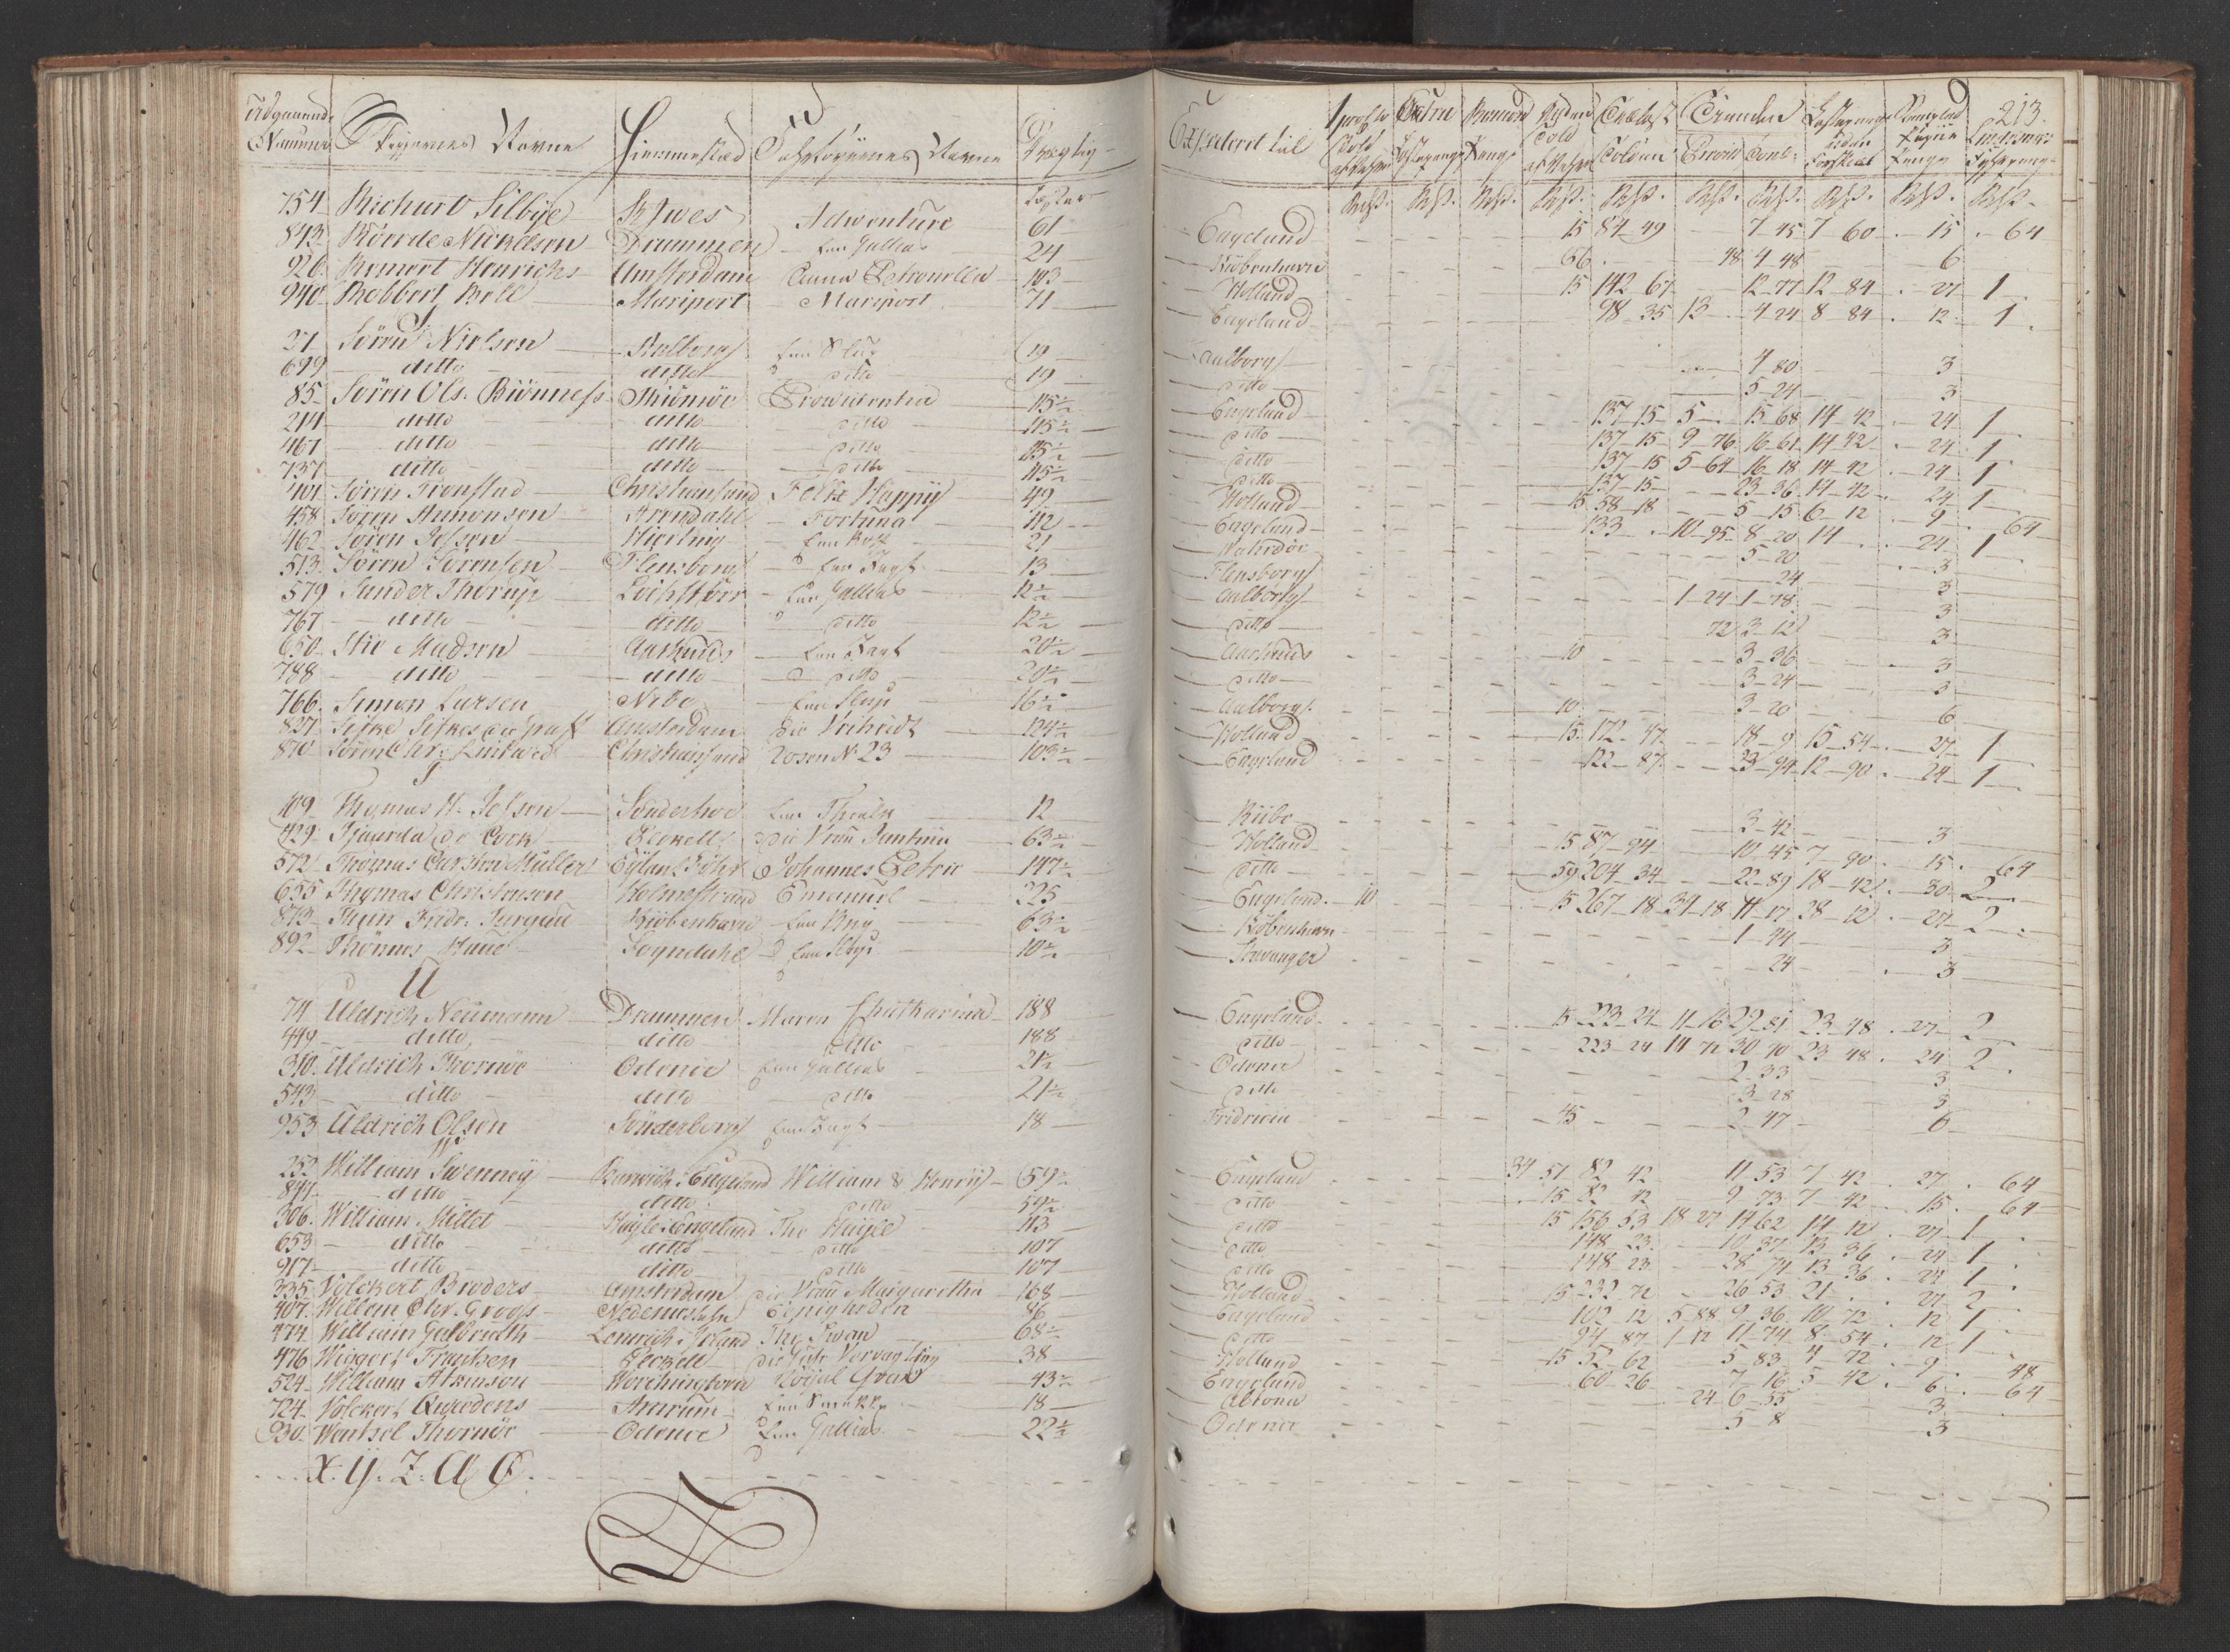 Udgaaende Nummer Skippernes Navne Hiemmestæd Fahrtøyernes Navne Drægtig-
Læster
754 Richard Silbye St Iwes Adwenture 61
843 Rörrde Nickelsen Drammen Een Gallias 24
926 Remert Henrichs Amsterdam Anna Petronella 103
940 Robbert Bell Mariport Mariport 71
S
21 Sören Nielsen Aalborg Een Slup 19
699 ditto ditto ditto 19
85 Sören Ols. Biönness Prowidentia 115½
214 ditto ditto ditto 115½
467 ditto ditto ditto 115½
737 ditto ditto ditto 115½
401 Sören Fronstad Christiansand Felix Happij 49
458 Sören Amonsen Arendahl Fortuna 112
462 Sören Jessen Hiörring 21
513 Sören Sörensen Flensborg Een Jagt 13
579 Sander Thorup Löchstörr Een Gallias 12½
767 ditto ditto ditto 12½
650 Stie Madsen Aarhuus Een Jagt 20½
788 ditto ditto ditto 20½
766 Simon Larsen Nibe Een Slup 16½
827 Amsterdam Die Vrihridt 124½
870 Christiansand Rosen N 23 103½
T
409 Thomas H. Jessen Sönderhoe 12
429 Tjaarda de Cock Peckell Die Vrau Jantina 63½
572 Thomas Carsten Müller Eyland Föhr Johannes Petrie 147½
655 Thomas Christensen Holmestrand Emanuel 225
873 Kiöbenhavn Een Brig 63½
892 Thönnes Sogndahl Een Slup 10½
U
74 Uldrich Neumann Drammen Maren Chatharina 188
449 ditto ditto ditto 188
310 Uldrich Thornöe Odense Een Gallias 21½
543 ditto ditto ditto 21½
953 Uldrich Olsen Sönderborg Een Jagt 18
W
252 William Swenney Barwich i Engeland William & Henrij 59½
844 ditto ditto ditto 59½
306 William Millet Hayle i Engeland The Haijle 113
653 ditto ditto ditto 107
917 ditto ditto ditto 107
335 Volckert Broders Amsterdam Die Vrau Margaretha 168
407 Willem Chr. Groos Enigheden 86
474 William Galbraith i Irland The Swan 68½
476 Wiggert Frantsen Peckell 38
524 William Atkinson Worchington Royal Oak 43½
724 Volckert Amrum Een Smakke 18
930 Wentsel Thornöe Odense Een Gallias 22½
X. Y. Z. Æ Ö.
213.
Expederet til
Engeland 15 84 49 7 45 7 60 15 64
Kiöbenhavn 66 48 4 48 6
Holland 15 142 67 12 77 12 84 27 1
Engeland 98 35 13 4 24 8 84 12 1
Aalborg 4 80 3
ditto 5 24 3
Engeland 137 15 5 15 68 14 42 24 1
ditto 137 15 9 76 16 61 14 42 24 1
ditto 137 15 5 64 16 18 14 42 24 1
ditto 137 15 23 36 14 42 24 1
Holland 15 58 18 5 15 6 12 9 64
Engeland 133 10 95 8 20 14 24 1
5 20 3
Flensborg 24 3
Aalborg 1 24 1 78 3
ditto 72 3 12 3
Aarhuus 10 3 36 3
ditto 3 24 3
Aalborg 10 3 20 6
Holland 15 172 47 18 9 15 54 27 1
Engeland 122 87 23 94 12 90 24 1
Riibe 3 42 3
Holland 15 87 94 10 45 7 90 15 64
ditto 59 204 34 22 89 18 42 30 2
Engeland 10 15 267 18 34 18 11 17 28 12 27 2
Kiöbenhavn 1 94 3
Stavanger 24 3
Engeland 15 223 24 11 16 29 81 23 48 27 2
ditto 223 24 14 72 30 70 23 48 24 2
Odense 2 33 3
ditto 3 28 3
Fridricia 45 2 47 6
Engeland 34 51 82 42 11 53 7 42 27 64
ditto 15 82 42 9 73 7 42 15 64
ditto 15 156 53 18 27 14 62 14 12 27 1
ditto 148 23 10 37 13 36 24 1
ditto 148 23 28 74 13 36 24 1
Holland 15 232 72 26 53 21 27 2
Engeland 102 12 5 88 9 36 10 72 12 1
ditto 94 87 1 12 11 74 8 54 12 1
Holland 15 52 62 5 83 4 72 9 48
Engeland 60 26 7 16 5 42 6 64
Altona 24 6 55 3
Odense 5 8 3